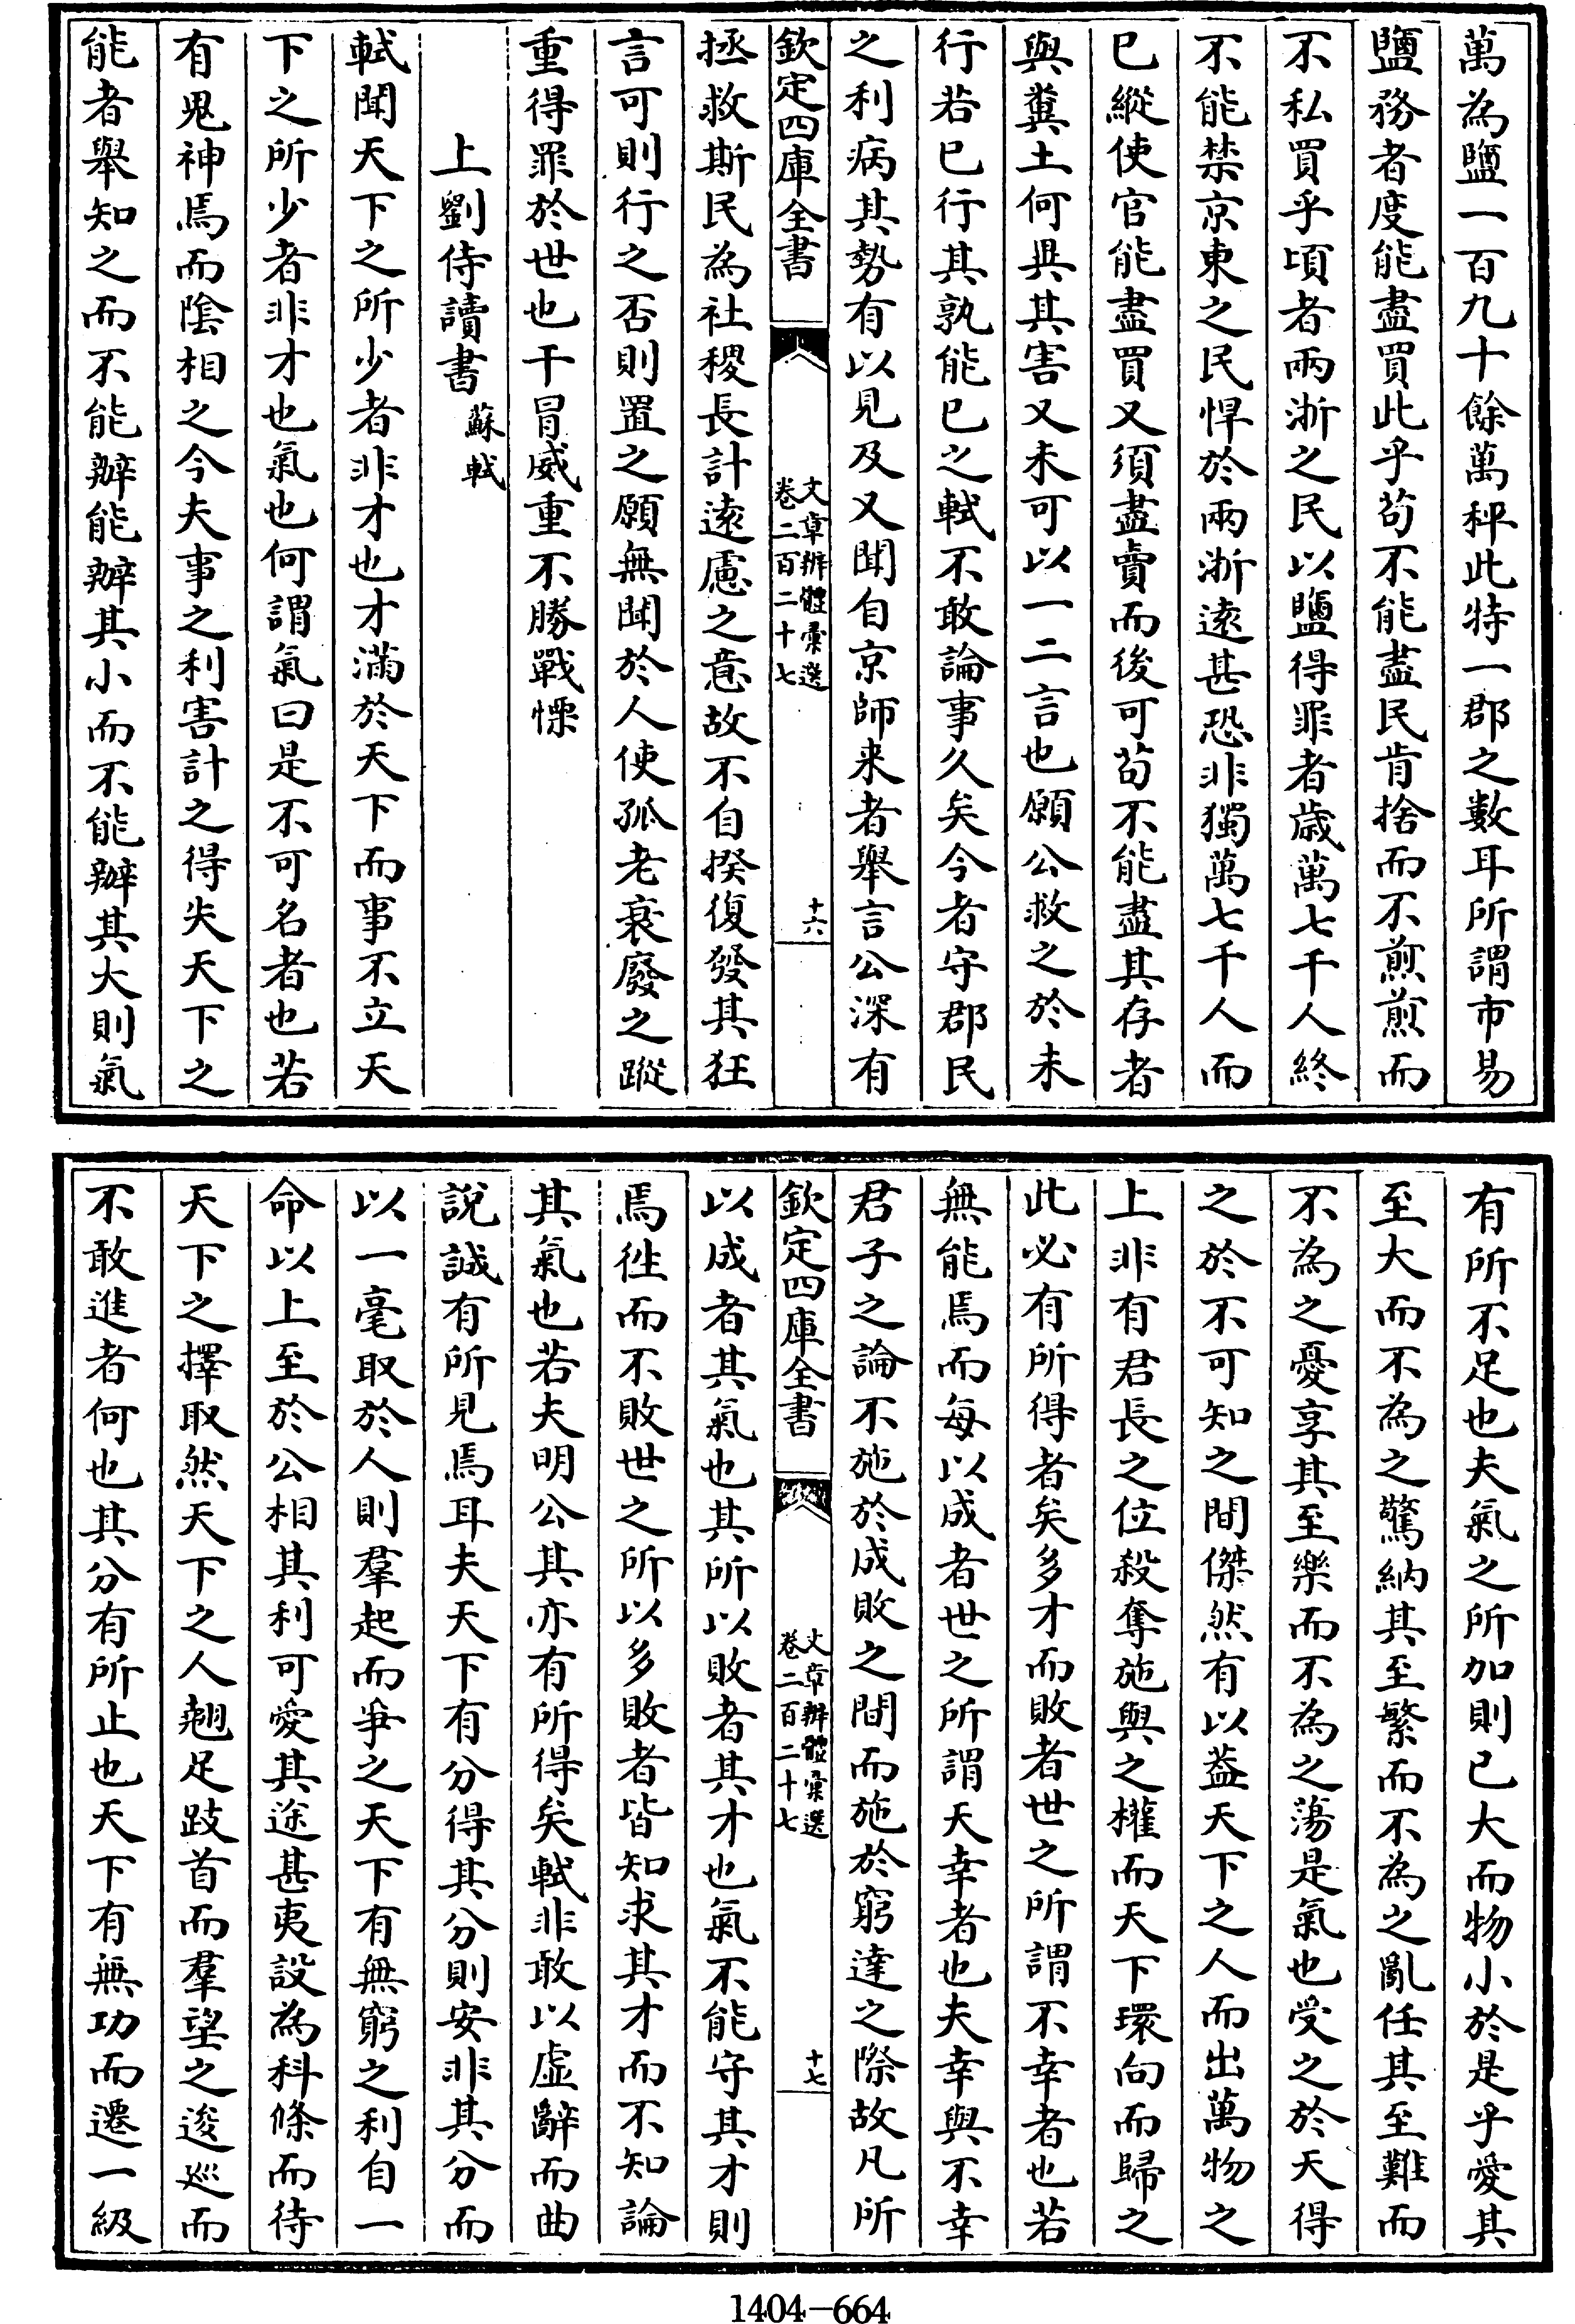 萬為鹽一百九十餘萬秤此特一郡之數耳所謂市易
鹽務者度能盡買此乎茍不能盡民肯捨而不煎煎而
不私買乎頃者兩浙之民以鹽得罪者歳萬七千人終
不能禁京東之民悍於兩浙逺甚恐非獨萬七千人而
已縱使官能盡買又須盡賣而後可茍不能盡其存者
與糞土何異其害又未可以一二言也願公救之於未
行若已行其孰能已之軾不敢論事久矣今者守郡民
之利病其勢有以見及又聞自京師来者舉言公深有
欽定四庫全書
文章辨體彙選
卷二百二十七
十六
拯救斯民為社稷長計逺慮之意故不自揆復發其狂
言可則行之否則置之願無聞於人使孤老衰廢之蹤
重得罪於世也干冒威重不勝戰慄
上劉侍讀書 蘇軾
軾聞天下之所少者非才也才滿於天下而事不立天
下之所少者非才也氣也何謂氣曰是不可名者也若
有鬼神焉而隂相之今夫事之利害計之得失天下之
能者舉知之而不能辦能辦其小而不能辦其大則氣
有所不足也夫氣之所加則已大而物小於是乎愛其
至大而不為之驚納其至繁而不為之亂任其至難而
不為之憂享其至樂而不為之蕩是氣也受之於天得
之於不可知之間傑然有以葢天下之人而出萬物之
上非有君長之位殺奪施與之權而天下環向而歸之
此必有所得者矣多才而敗者世之所謂不幸者也若
無能焉而每以成者世之所謂天幸者也夫幸與不幸
君子之論不施於成敗之間而施於窮達之際故凡所
欽定四庫全書
文章辨體彙選
卷二百二十七
十七
以成者其氣也其所以敗者其才也氣不能守其才則
焉徃而不敗世之所以多敗者皆知求其才而不知論
其氣也若夫明公其亦有所得矣軾非敢以虛辭而曲
說誠有所見焉耳夫天下有分得其分則安非其分而
以一毫取於人則羣起而爭之天下有無窮之利自一
命以上至於公相其利可愛其途甚夷設為科條而待
天下之擇取然天下之人翹足跂首而羣望之逡巡而
不敢進者何也其分有所止也天下有無功而遷一級
1404-664